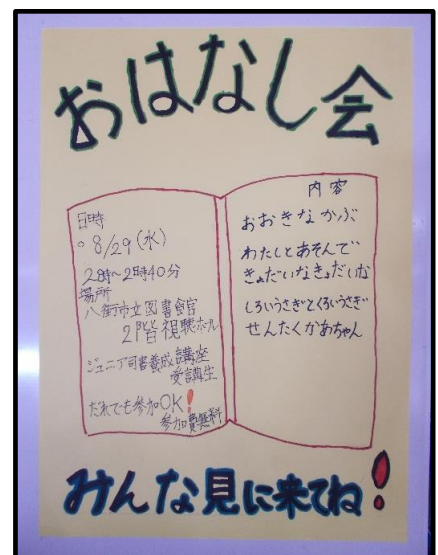 おはなし会
日時
○ 8/29(水)
2時～2時40分
場所
八街市立図書館
2階視聴ホール
ジュニア司書養成講座
受講生
だれでも参加OK!
参加費無料
内容
おおきなかぶ
わたしとあそんで
きょだいなきょだいな
しろいうさぎとくろいうさぎ
せんたくかあちゃん
みんな見に来てね!